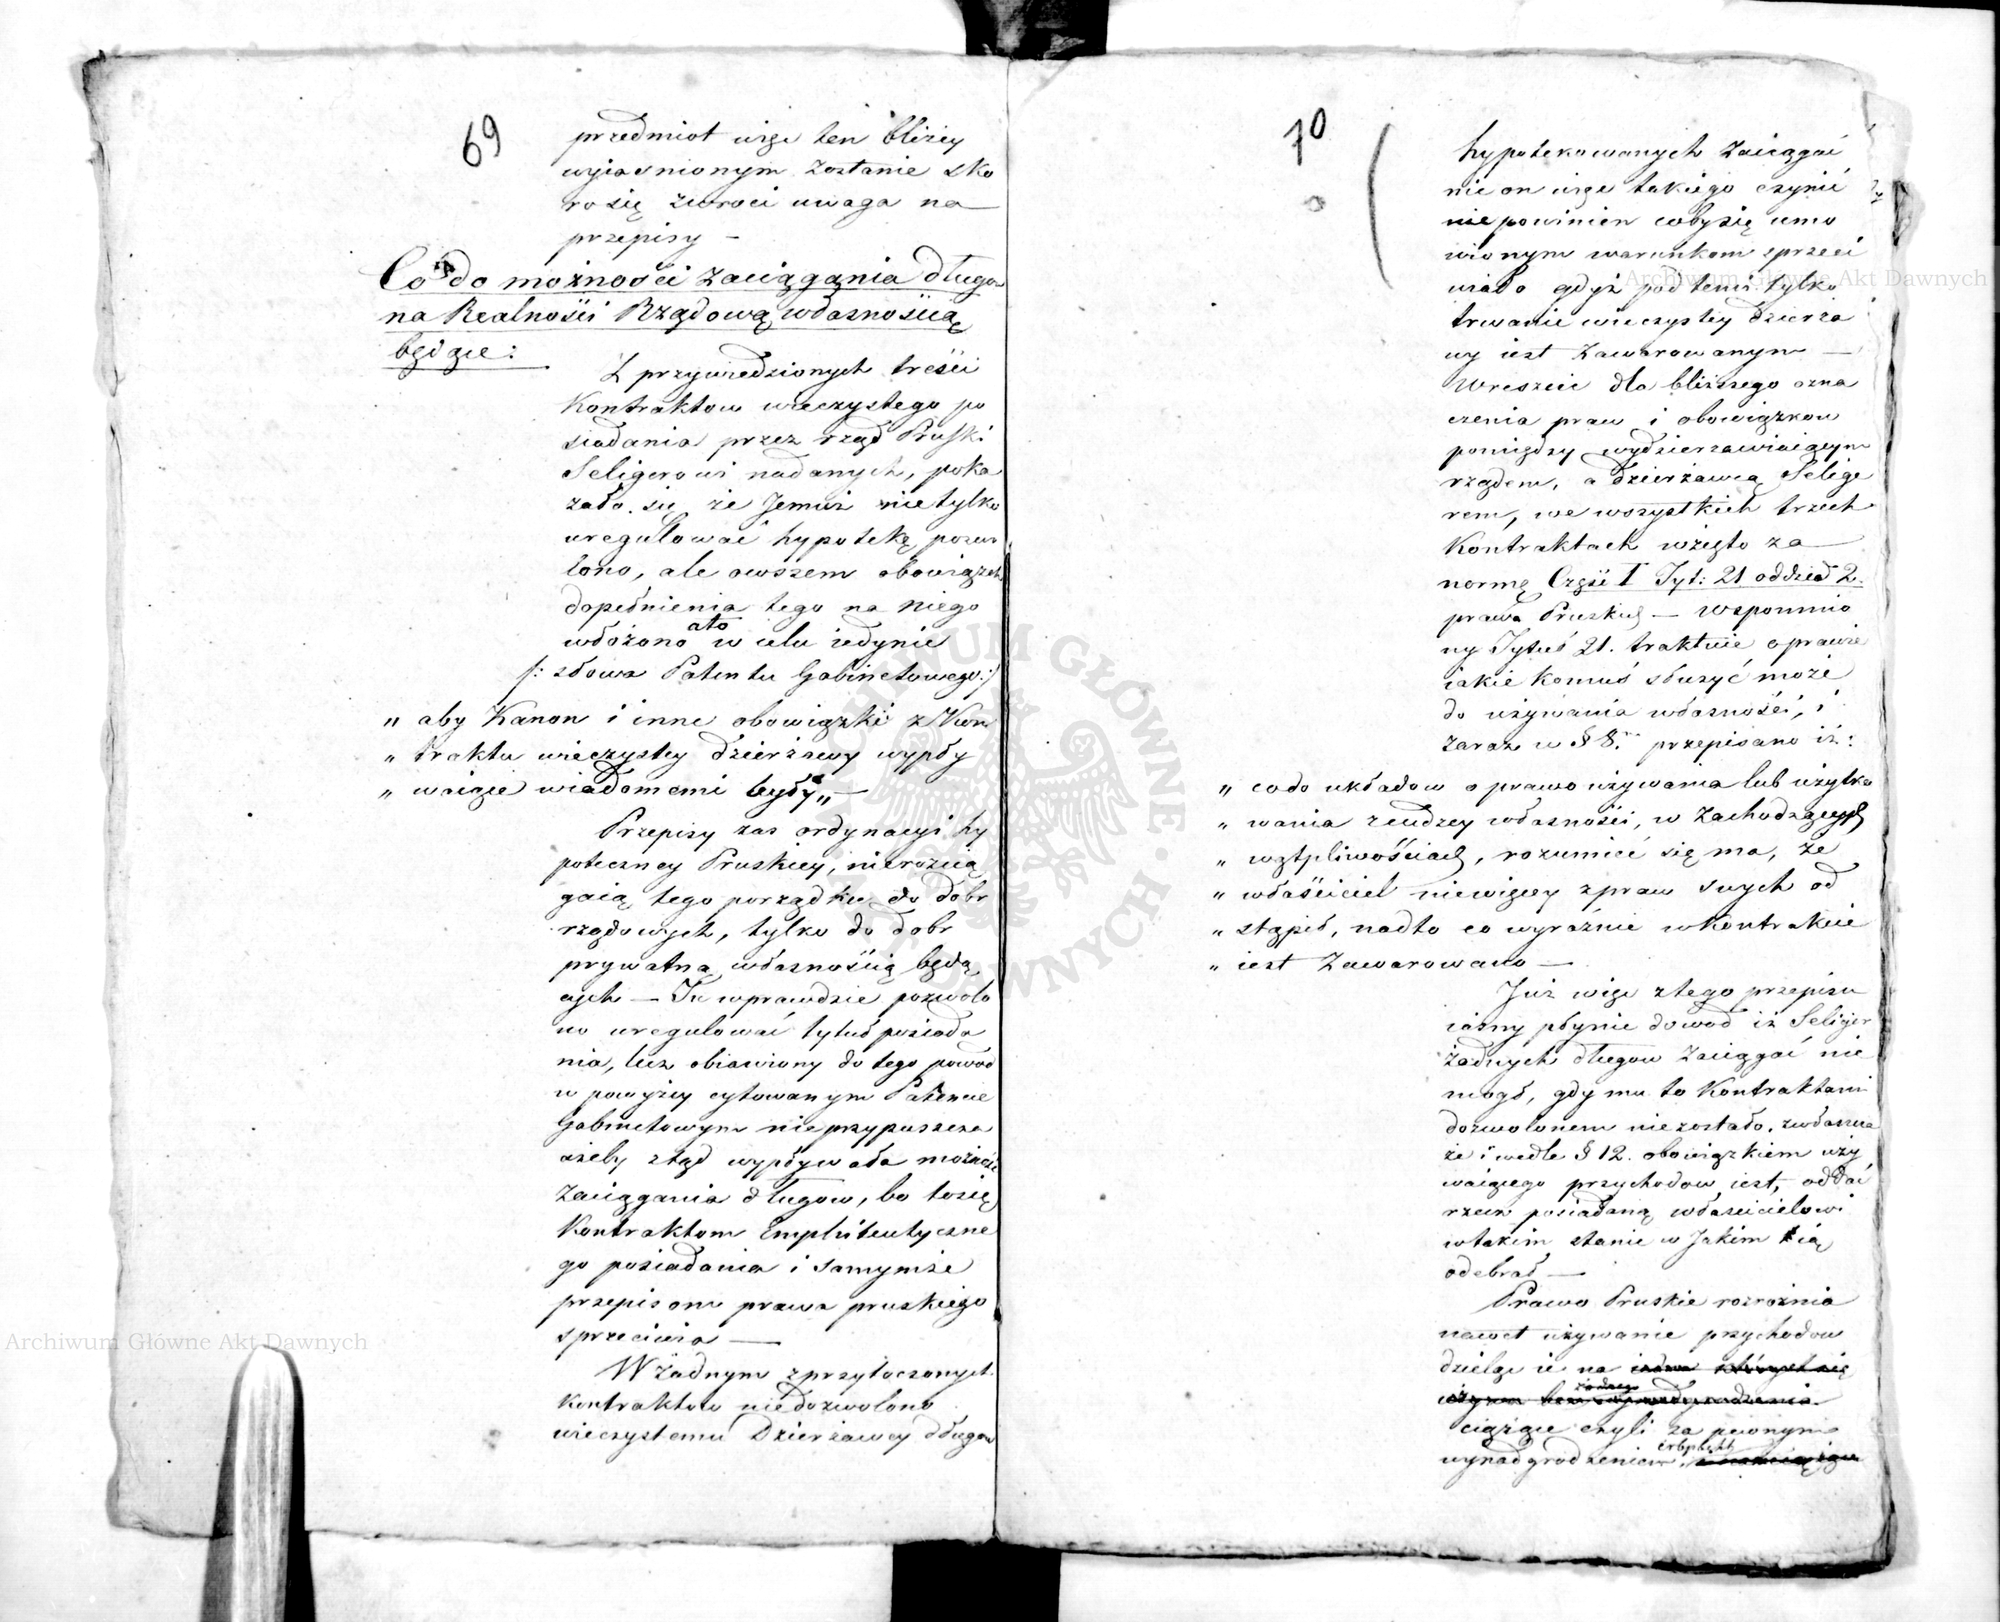 69
przedmiot więc ten bliżey
wyiasnionym zostanie sko
ro się zwróci uwaga na
przepisy —
Co do możności zaciągania długow
na Realności Rządową własnością
będące:
Z przywiedzionych treści
Kontraktow wieczystego po
siadania przez rząd Pruski
Seligerowi nadanych, poka
zało się że Jemuż nie tylko
uregulować hypotekę pozwo
lono, ale owszem obowiązek
dopełnienia tego na niego
włożono ato w celu iedynie
/: słowa Patentu Gabinetowego :/
„ aby Kanon i inne obowiązki z Kon
„ traktu wieczystey dzierżawy wypły
„ waiące wiadomemi były „ —
Przepisy zas ordynacyi hy
poteczney Pruskiey, nierozcią
gaią tego porządku do dóbr
rządowych, tylko do dobr
prywatną własnością będą
cych — Tu wprawdzie pozwolo
no uregulować tytuł posiada
nia, lecz obiawiony do tego powód
w powyżey cytowanym Patencie
Gabinetowym nie przypuszcza
ażeby ztąd wypływała możność
zaciągania długow, bo to się
Kontraktom Emphiteutyczne
go posiadania i samymże
przepisom prawa pruskiego
sprzeciwia —
W żadnym z przytoczonych
Kontraktow niedozwolono
wieczystemu Dzierżawcy długow
70
hypotekowanych zaciągać
nie on więc takiego czynić
nie powinien coby się umo
wionym warunkom sprzeci
wiało gdyż pod temi tylko
trwanie wieczystey dzierża
wy iest zawarowanym —
Wreszcie dla bliższego ozna
czenia praw i obowiązkow
pomiędzy wydzierzawiaiącym
rządem, a dzierżawcą Selige
rem, we wszystkich trzech
Kontraktach wzięto za
normę Części I Tyt: 21 oddział 2.
prawa Pruskiego — Wspomnio
ny Tytuł 21. traktuie o prawie
iakie komuś służyć może
do używania własności, i
zaraz w § 8. przepisano iż:
„ co do układow o prawo używania lub użytko
„ wania cudzey własności, w zachodzących
„ wątpliwościach, rozumieć się ma, że
„ właściciel niewięcey z praw swych od
„ stąpił, nadto co wyraźnie w Kontrakcie
„ iest zawarowano —
Już więc z tego przepisu
iasny płynie dowod iż Seliger
żadnych długow zaciągać nie
mogł, gdy mu to Kontraktami
dozwolonem nie zostało, zwłaszcza
że i wedle § 12. obowiązkiem uży
waiącego przychodow iest, oddać
rzecz posiadaną właścicielowi
w takim stanie w Jakim ią
odebrał —
Prawo Pruskie rozróżnia
nawet używanie przychodow
dzieląc ie na
żadnego
ciążące czyli za pewnym
erbpacht
wynadgrodzeniem